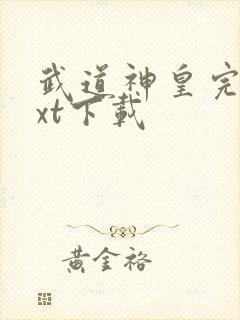 武道神皇完
xt下載
黃金裕